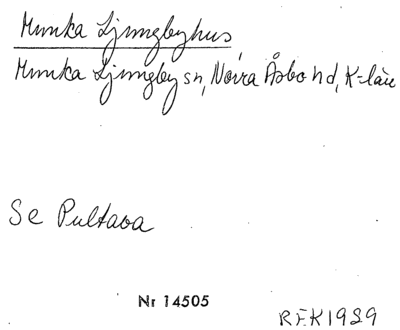 Munka Ljungbyhus
Munka Ljungby sn, Norra Åsbo hd, K-län
Se Pultava
Nr 14505
REK 1989